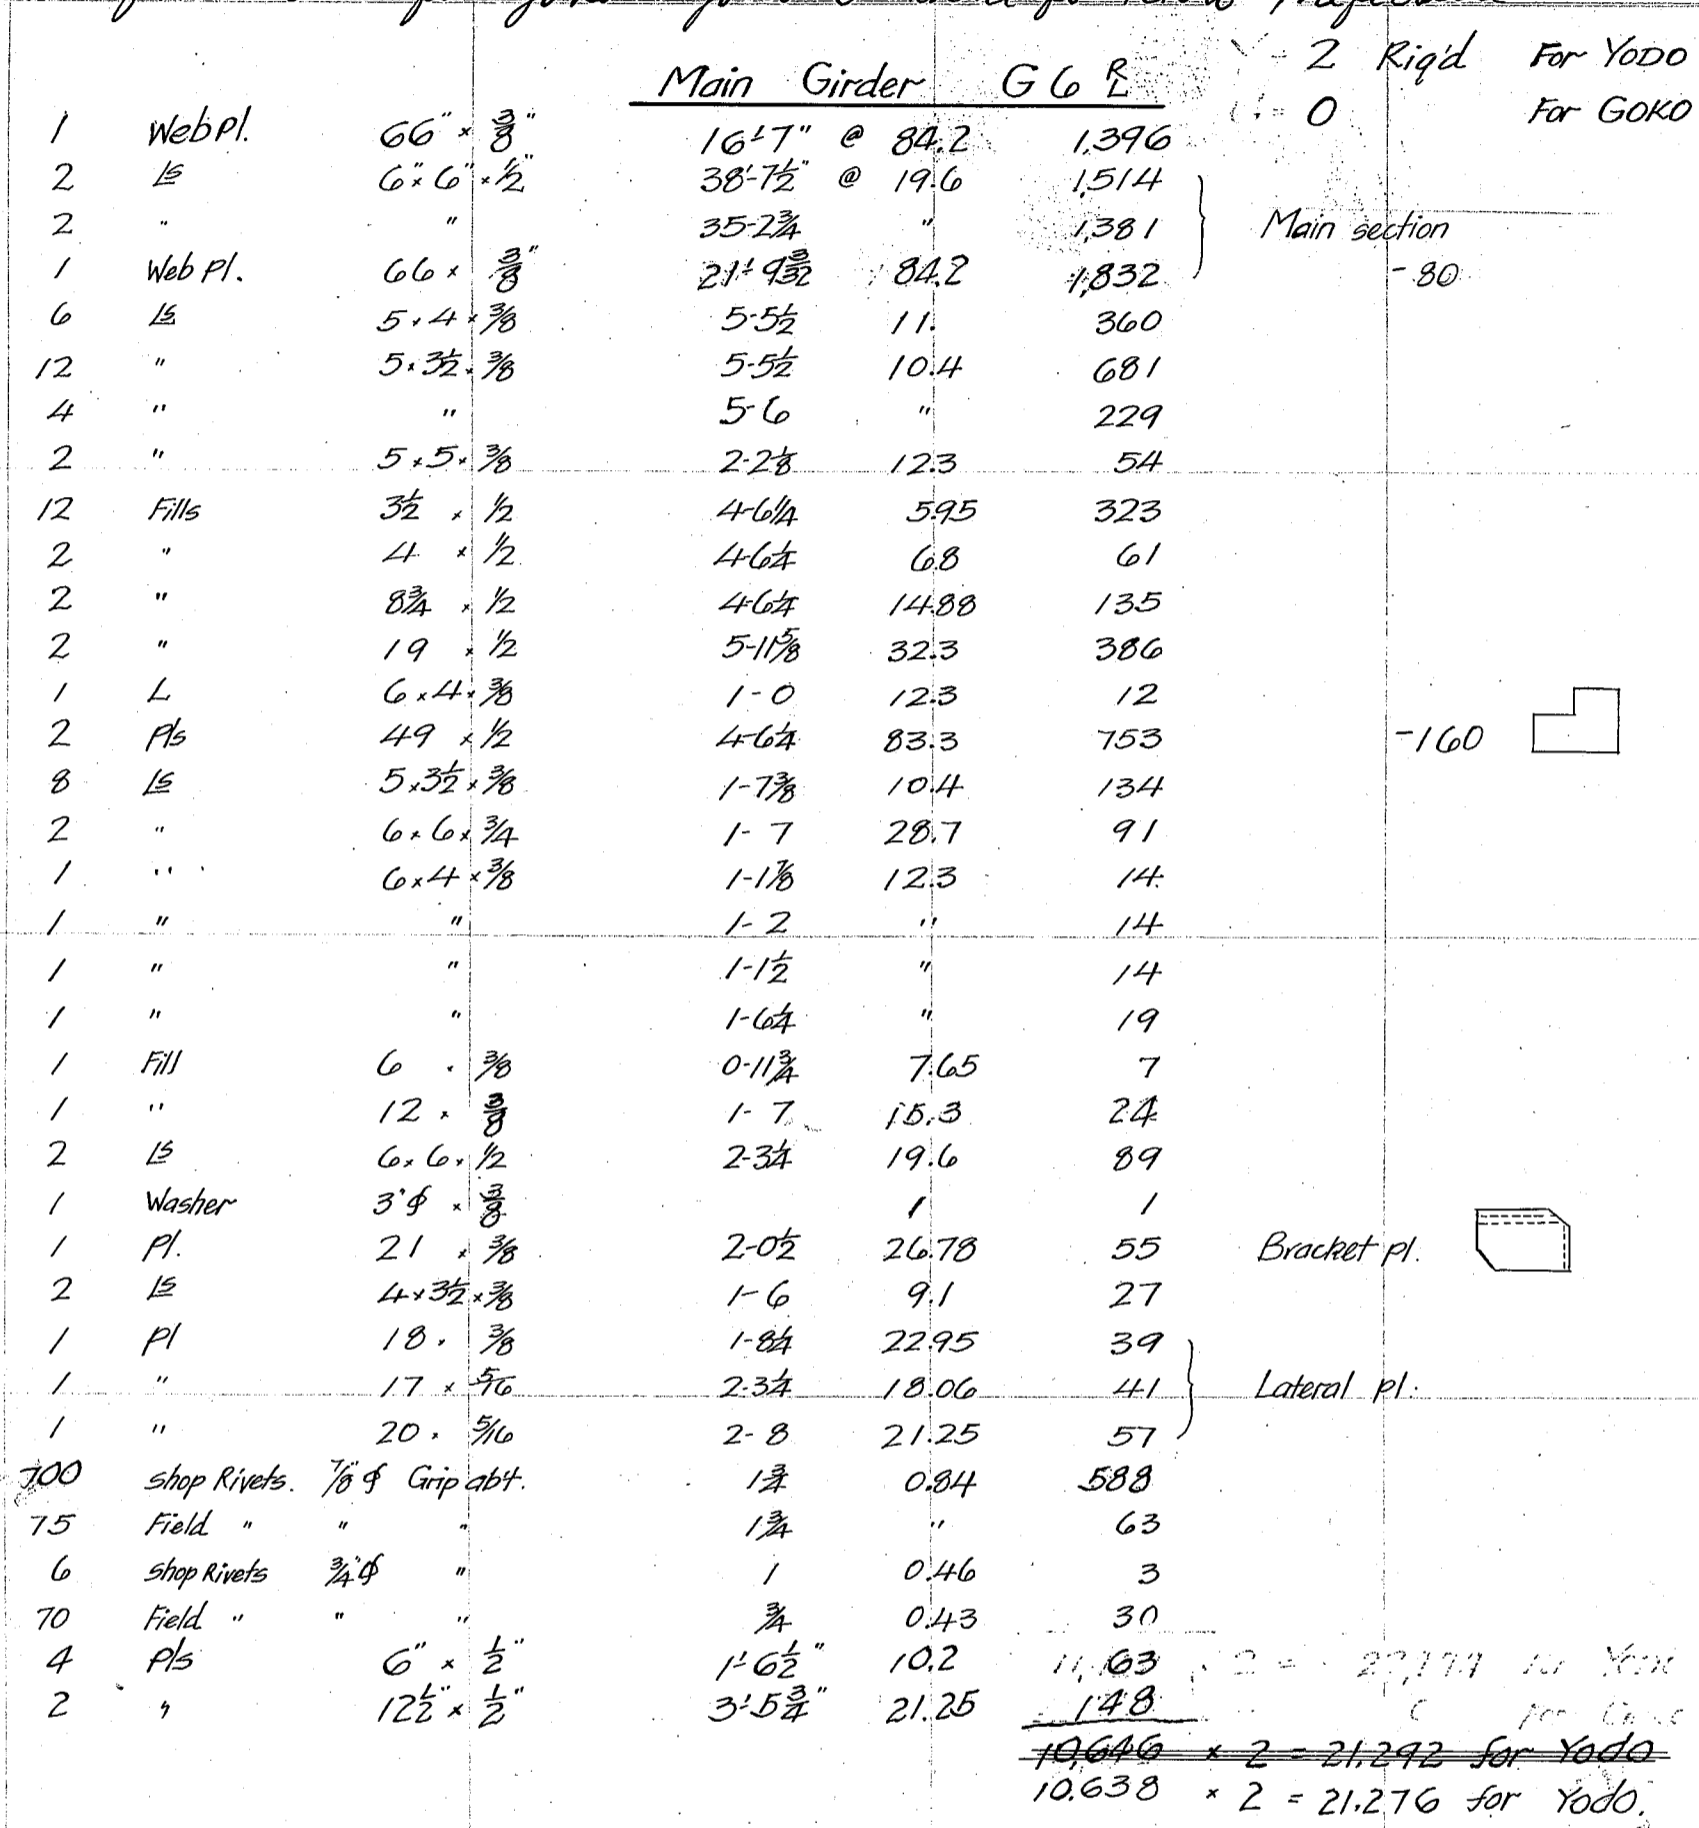 Main Girder G6 R/L
2 Riq'd For YODO
0 For GOKO
1 Web Pl. 66" × 3/8" 16'-7" @ 84.2 1,396
2 Ls 6" × 6" × 1/2" 38'-7 1/2" @ 19.6 1,514
2 " " 35-2 3/4 " 1,381 Main section
1 Web Pl. 66 × 3/8" 21'-9 3/32 84.2 1,832 -80
6 Ls 5 × 4 × 3/8 5-5 1/2 11. 360
12 " 5 × 3 1/2 × 3/8 5-5 1/2 10.4 681
4 " " 5-6 " 229
2 " 5 × 5 × 3/8 2-2 1/8 12.3 54
12 Fills 3 1/2 × 1/2 4-6 1/4 5.95 323
2 " 4 × 1/2 4-6 1/4 6.8 61
2 " 8 3/4 × 1/2 4-6 1/4 14.88 135
2 " 19 × 1/2 5-11 5/8 32.3 386
1 L 6 × 4 × 3/8 1-0 12.3 12
2 Pls 49 × 1/2 4-6 1/4 83.3 753 -160
8 Ls 5 × 3 1/2 × 3/8 1-7 3/8 10.4 134
2 " 6 × 6 × 3/4 1-7 28.7 91
1 " 6 × 4 × 3/8 1-1 7/8 12.3 14
1 " " 1-2 " 14
1 " " 1-1 1/2 " 14
1 " " 1-6 1/4 " 19
1 Fill 6 × 3/8 0-11 3/4 7.65 7
1 " 12 × 3/8 1-7 15.3 24
2 Ls 6 × 6 × 1/2 2-3 1/4 19.6 89
1 Washer 3"φ × 3/8 1 1
1 Pl. 21 × 3/8 2-0 1/2 26.78 55 Bracket pl.
2 Ls 4 × 3 1/2 × 3/8 1-6 9.1 27
1 Pl 18 × 3/8 1-8 1/4 22.95 39
1 " 17 × 5/16 2-3 1/4 18.06 41 Lateral pl.
1 " 20 × 5/16 2-8 21.25 57
700 Shop Rivets. 7/8"φ Grip abt. 1 3/4 0.84 588
75 Field " " " 1 3/4 " 63
6 Shop Rivets 3/4"φ " 1 0.46 3
70 Field " " " 3/4 0.43 30
4 Pls 6" × 1/2" 1'-6 1/2" 10.2 63
2 " 12 1/2" × 1/2" 3'-5 3/4" 21.25 148
10,646 × 2 = 21,292 for Yodo
10.638 × 2 = 21,276 for Yodo.